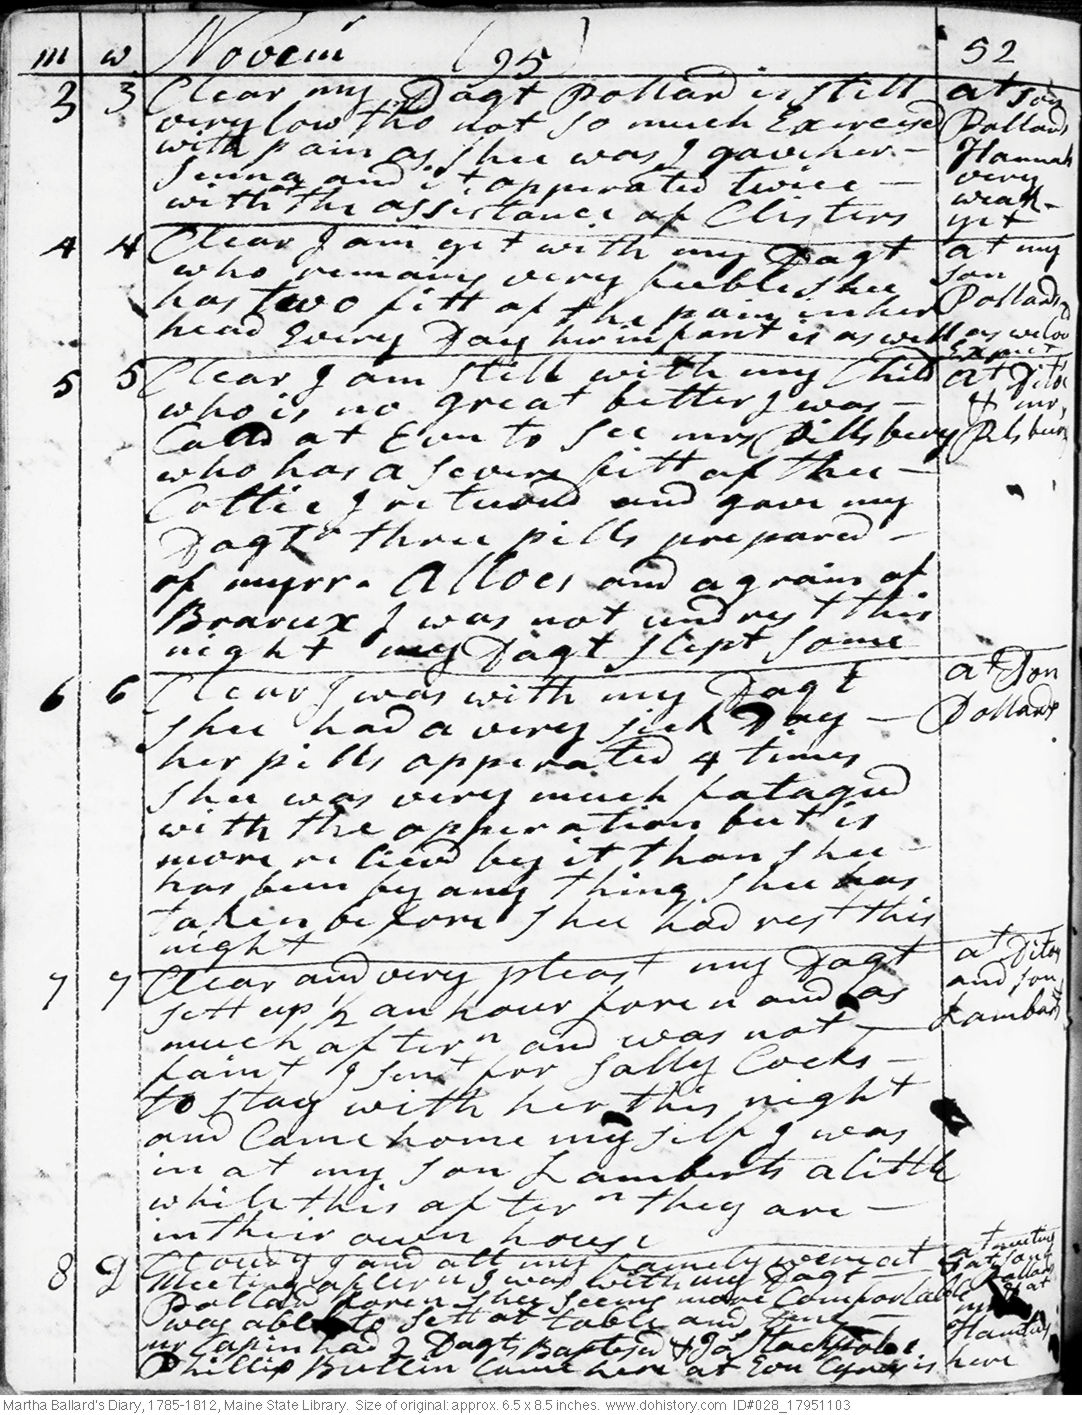 m w Novem r (95) 52
3 3 Clear my Dagt Pollard is still at son
very low tho not so much Exercisd Pollards
with pain as shee was I gave her - Hannah
Senna and it opperated twice - very
with the assistance of Clisters weak - yet
4 4 Clear I am yet with my Dagt at my
who remains very feeble shee son
has two fitt of the pain in her Pollards
head Every Day her infant is as well as we Coo
Expect
5 5 Clear I am still with my Child at Ditos
who is no great better I was - & mr
Calld at Evn to See mrs Pillsbury Pilsburys
who has a severe fitt of thee -
Collic I returnd and gave my
Dagt r three pills prepared -
of myrr. Alloes and a grain of
Brarux I was not undrest this
night my Dagt slept some
6 6 Clear I was with my Dagt at Son
shee had a very sick Day - Pollards
her pills opperated 4 times
shee was very much fatagud
with the opperation but is
more relievd by it than shee -
has been by any thing shee has
taken before shee had rest this
night
7 7 Clear and very pleast my Dagt at Ditos
sett up ½ an hour foren and as and son
much aftern and was not - Lambards
faint I sent for Sally Cocks -
to stay with her this night
and Came home my self I was
in at my son Lambards a little
while this aftern they are -
in their own house
8 D Cloudy I and all my family were at at meeting
Meeting aftern I was with my Dagt - at sons
Pollard foren shee seems more Comfortable Pollards
was able to sett at table and Dine -
mr Tapin had 2 Dagts Baptisd & Jas Stackpole 1
Phillip Bullin Came here at Evn Cyrus is here